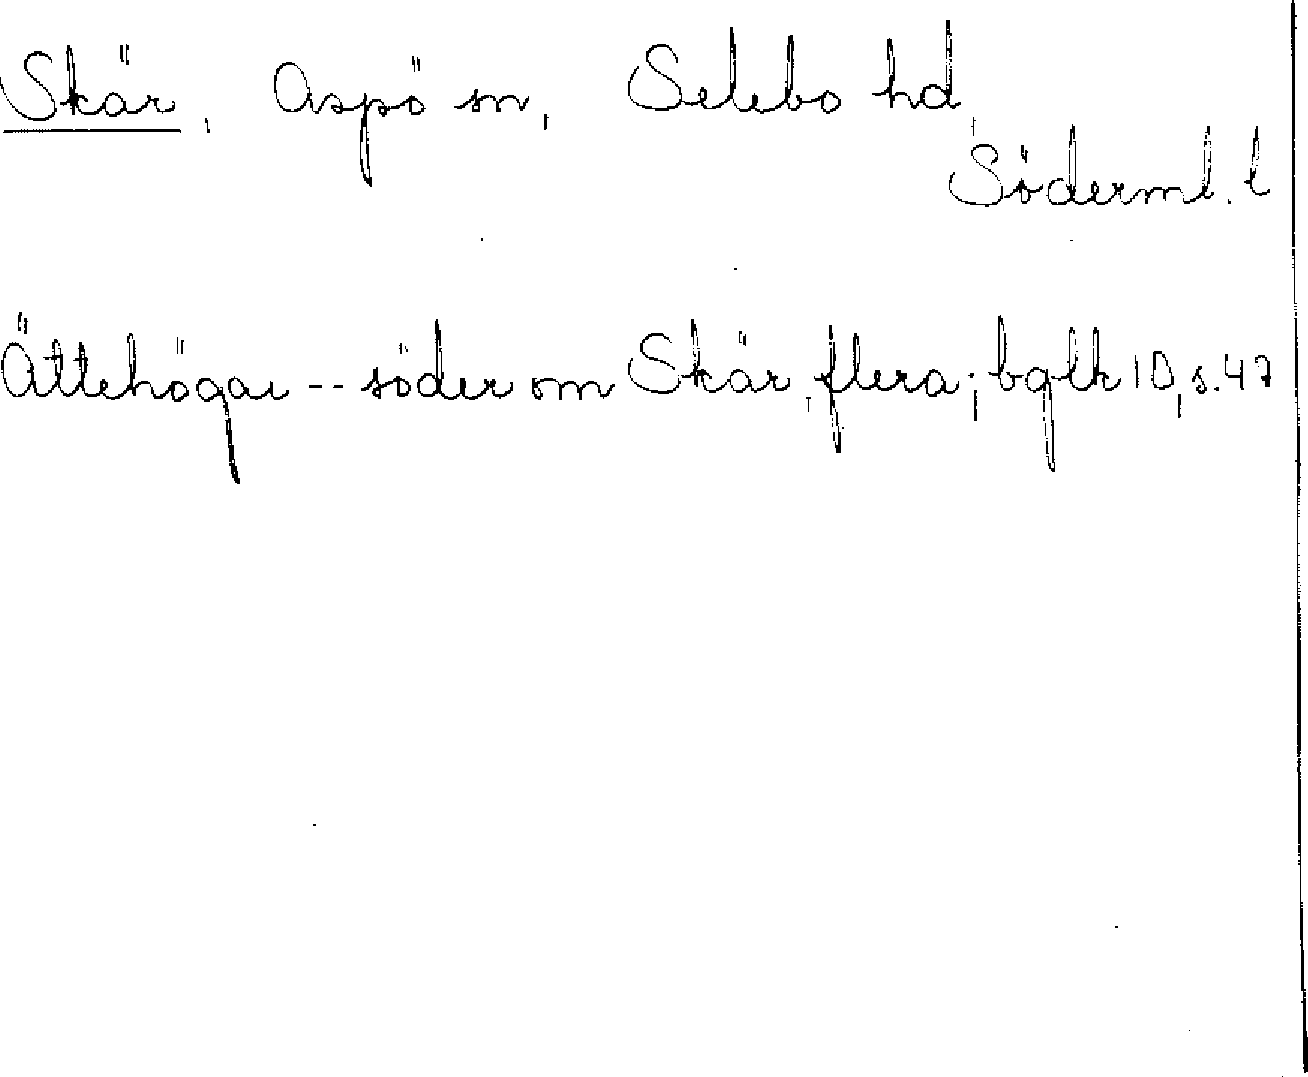 Skär, Aspö sn, Selebo hd,
Söderml. l
Ättehögar -- söder om Skär, flera; bglk 10, s. 47